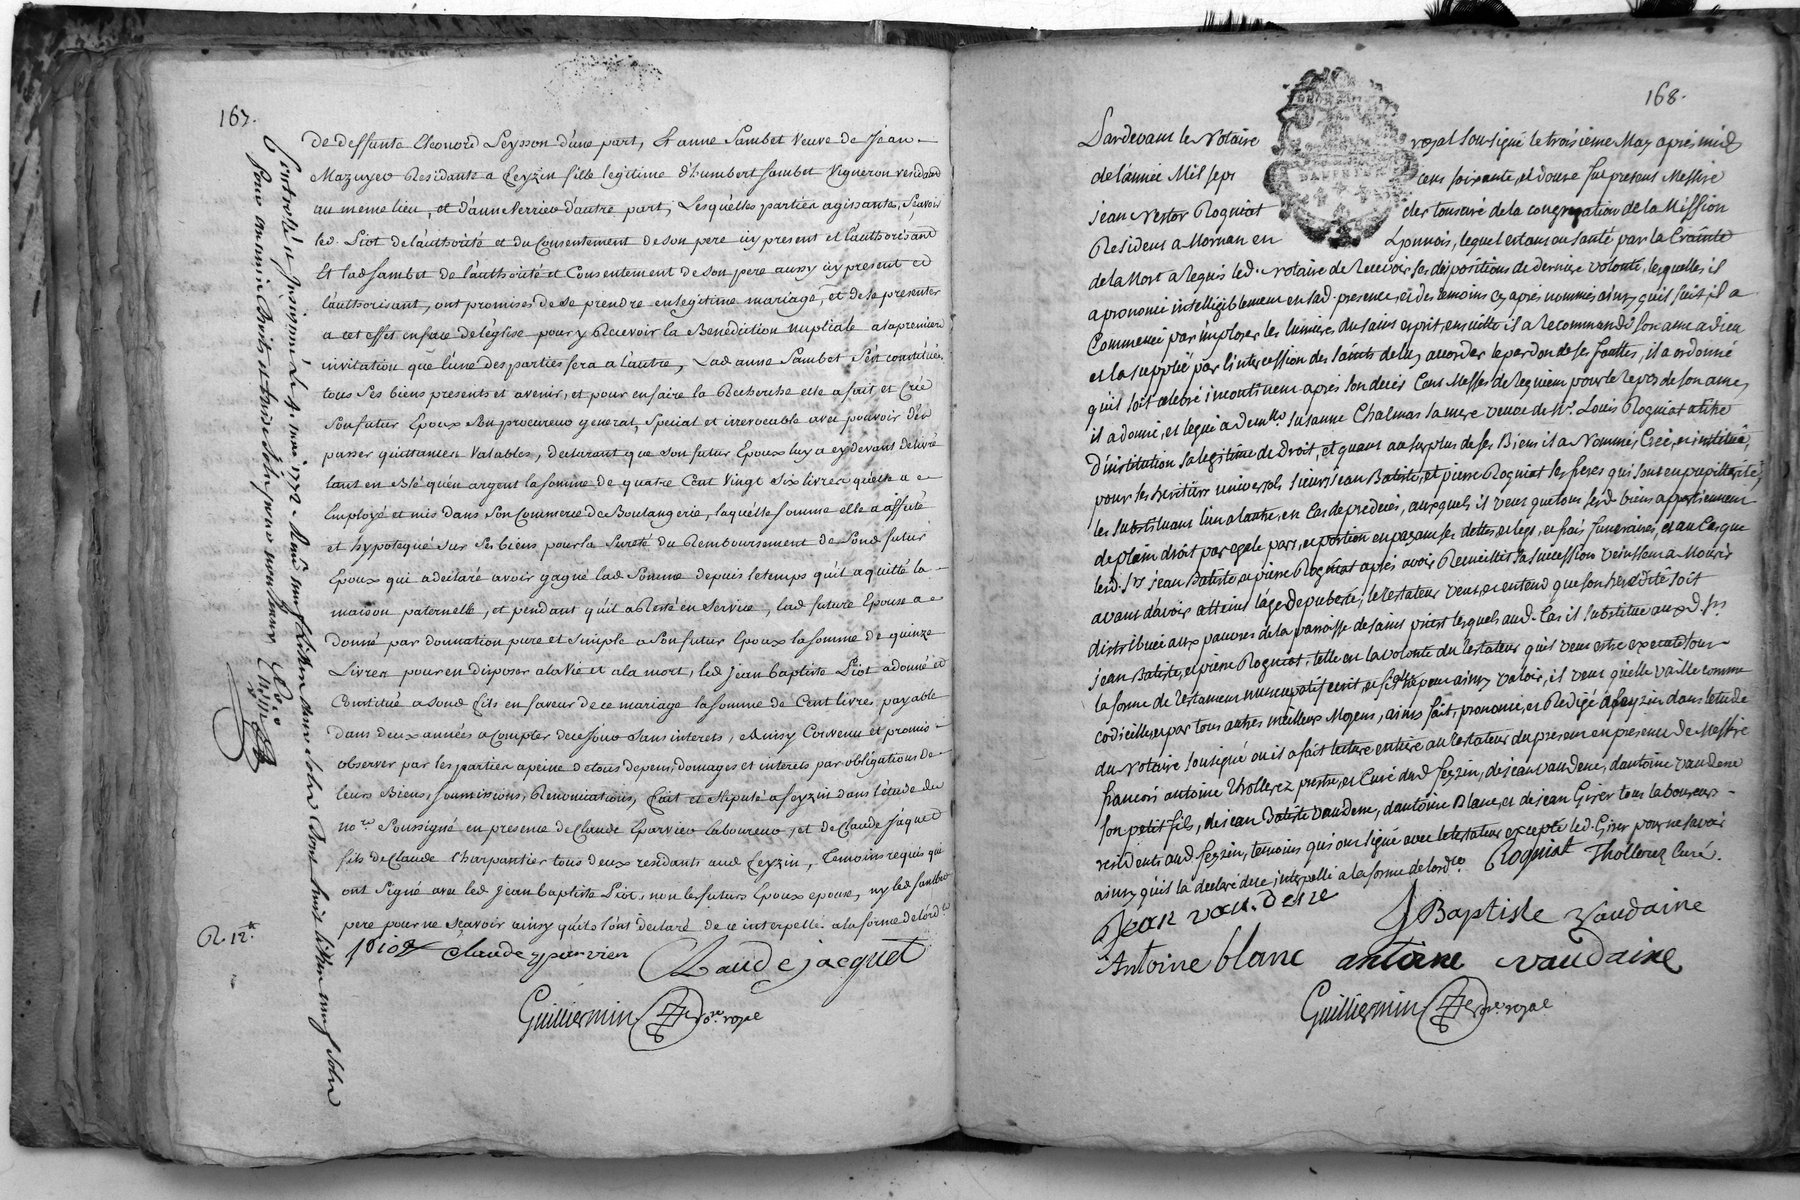 167.
de deffunte Eleonord Peysson d'une part, Et anne Sambet veuve de Jean
Mazuyer Residante a feyzin fille legitime d'humbert Sambet Vigneron residand
au meme lieu, et d'anne Verrier d'autre part, Lesquelles parties agissantes, sçavoir
led. Piot de l'authorité et du Consentement de son pere icy present et l'authorisant
Et lad Sambet de l'authorité et Consentement de son pere aussy icy present et
l'authorisant, ont promises de se prendre en legitime mariage, et de se presenter
a cet effet en face de l'église pour y Recevoir la Benediction nuptiale a la premiere
invitation que l'une des parties fera a l'autre, Lad anne Sambet s'est constituée
tous ses biens presents et avenir, et pour en faire la Recherche elle a fait et Créé
Son futur Epoux Son procureur general, special et irrevocable avec pouvoir d'en
passer quittances valables, declarant que son futur Epoux luy a cy devant delivré
tant en Blé qu'en argent la somme de quatre Cent Vingt Six livres qu'elle a
Employé et mis dans son Commerce de Boulangerie, laquelle somme elle a affecté
et hypotequé sur ses biens pour la sureté du Remboursement de Sond futur
Epoux qui a declaré avoir gagné lad Somme depuis le temps qu'il a quitté la
maison paternelle, et pendant qu'il a Resté en service, lad future Epouse a
donné par donnation pure et simple a Son futur Epoux la somme de quinze
Livres pour en disposer a la vie et a la mort, led Jean baptiste Piot a donné et
Constitué a sond fils en faveur de ce mariage la somme de Cent livres payable
dans deux années a Compter de ce jour sans interets, Ainsy Convenu et promis
observer par les parties a peine de tous depens, domages et interets par obligations de
leurs Biens, soumissions, Renonciations, fait et stipulé a feyzin dans l'étude du
no.re Soussigné en presence de Claude Eparvier laboureur, et de Claude Jaquet
fils de Claude Charpentier tous deux residants aud feyzin, Temoins requis qui
ont Signé avec led Jean baptiste Piot, non les futurs Epoux epouse, ny led Sambet
pere pour ne sçavoir ainsy qu'ils l'ont declaré de ce interpellés a la forme de l'ord.ce
piot claude eparvier Claude jacquet
Guilliermin no.re royal
Controllé et Insinué le 4. mai 1772
R. 12.s
168.
Pardevant le Notaire royal soussigné le troisieme May apres midy
de l'année Mil sept cent soixante, et douze fut present Messire
jean Nestor Rogniat clerc tonsuré de la congregation de la Mission
Resident a Mornan en Lyonnois, lequel estant en santé par la Crainte
de la Mort a requis led. notaire de Recevoir ses dispositions de derniere volonté, lesquelles il
a prononcé intelligiblement en sad. presence, et des temoins cy après nommés ainsy qu'il suit, il a
Commencé par implorer les lumieres du saint esprit, ensuitte il a recommandé son ame a dieu
et l'a supplié par l'intercession des saints de luy accorder le pardon de ses fauttes, il a ordonné
qu'il soit celebré incontinent après son decés Cent Messes de requiem pour le repos de son ame,
il a donné, et legué a dem.lle Susanne Chalmas sa mere veuve de M.r Louis Rogniat a titre
d'institution sa legitime de droit, et quant au surplus de ses Biens il a Nommé, Créé, et institué,
pour ses heritiers universels sieurs jean Batiste, et pierre Rogniat ses freres qui sont en pupillarité,
les substituant l'un a l'autre, en Cas de predecés, auxquels il veut que tous sesd. biens appartiennent
de plein droit par egale part, et portion en payant ses dettes, et legs, et frais funeraires, et au Cas que
led. S.rs jean Batiste, et pierre Rogniat après avoir Recueilli sa succession vinssent a Mourir
avant d'avoir atteint l'age de puberté, le testateur veut, et entend que son heredité soit
distribuée aux pauvres de la parroisse de saint priest lesquels aud. Cas il substitue auxd. S.rs
jean Batiste, et pierre Rogniat, telle est la volonté du testateur qu'il veut estre executé sous
la forme de testament nuncupatif ecrit, et si elle ne peut ainsy valoir, il veut qu'elle vaille comme
codicille, et par tous autres meilleurs Moyens, ainsi fait, prononcé, et Redigé a feyzin dans l'etude
du notaire soussigné ou il a fait lecture entiere au testateur du present en presence de Messire
francois antoine thollerez prestre, et Curé dud. feyzin, de jean vaudene, d'antoine vaudene
son petit fils, de jean Batiste vaudene, d'antoine Blanc, et de jean Girer tous laboureurs
residents aud feyzin, temoins qui ont signé avec le testateur excepté led. Girer pour ne savoir
ainsy qu'il l'a declaré de ce interpellé a la forme de l'ord.ce Rogniat Thollerez Curé.
Jean vaudene J Baptiste Vaudaine
Antoine blanc antoine vaudaine
Guilliermin no.re royal